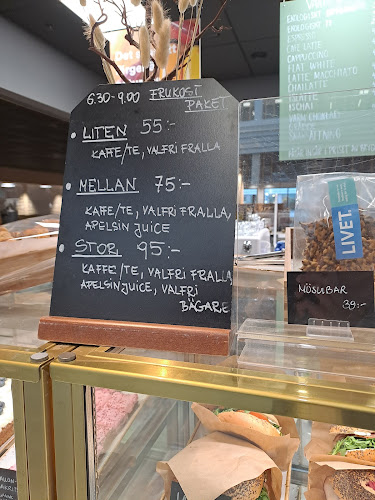 6.30-9.00 FRUKOST
PAKET
LITEN 55:-
KAFFE/TE, VALFRI FRALLA
MELLAN 75:-
KAFFE/TE, VALFRI FRALLA,
APELSIN JUICE
STOR 95:-
KAFFE/TE, VALFRI FRALLA,
APELSINJUICE, VALFRI
BÄGARE
ESPRESSO
CAFE LATTE
CAPPUCCINO
FLAT WHITE
LATTE MACCHIATO
CHAILATTE
VARM CHOKLAD
LIVET.
NÖSLIBAR
39:-